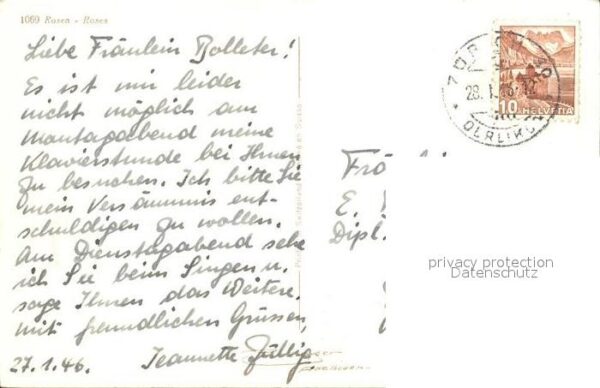 1069 Rosen - Roses
Liebe Fräulein Bolleter!
Es ist mir leider
nicht möglich am
Montagabend meine
Klavierstunde bei Ihnen
zu besuchen. Ich bitte Sie
mein Versäumnis ent-
schuldigen zu wollen.
Am Dienstagabend sehe
ich Sie beim Singen u.
sage Ihnen das Weitere.
mit freundlichen Grüssen,
27.1.46. Jeannette Züllig
28. I. 46-12
OERLIKON
10 HELVETIA
E.
Dipl.
privacy protection
Datenschutz